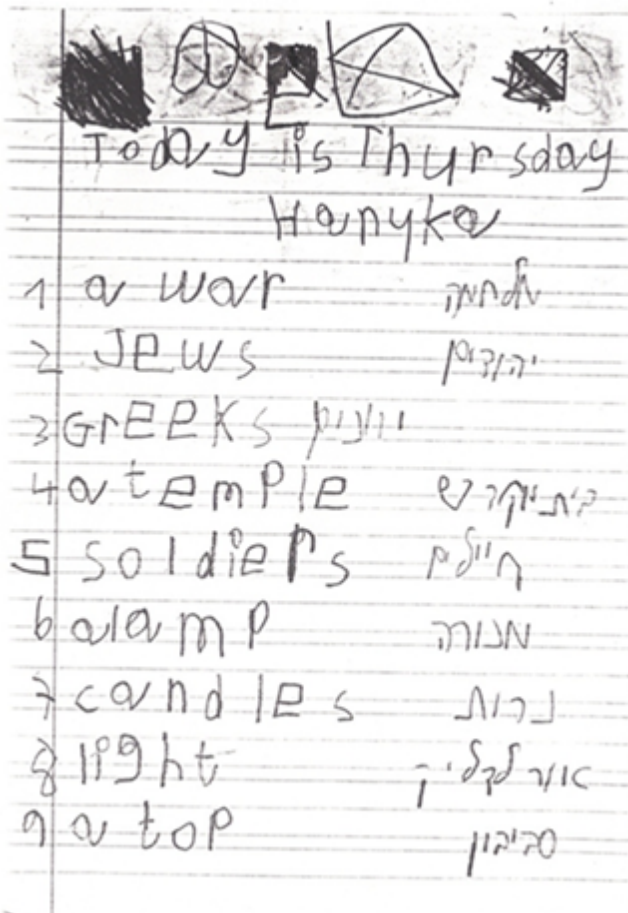 Today is Thursday
Hanyka
1 a war מלחמה
2 Jews יהודים
3 GrEEKs יוונים
4 a temple בית מקדש
5 soldiers חיילים
6 a lamp מנורה
7 candles נרות
8 light אור
9 a top סביבון